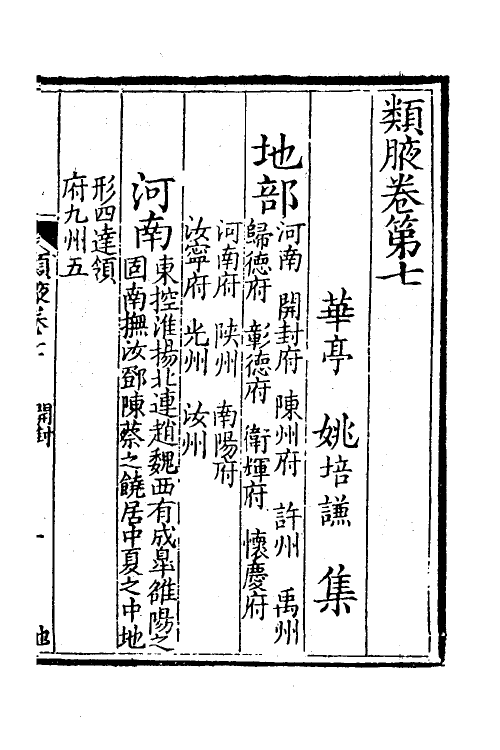 類腋卷第七
華亭 姚培謙 集
地部
河南 開封府 陳州府 許州 禹州
歸德府 彰德府 衛輝府 懷慶府
河南府 陝州 南陽府
汝寧府 光州 汝州
河南
東控淮揚北連趙魏西有成臯雒陽之
固南撫汝鄧陳蔡之饒居中夏之中地
形四達領
府九州五
類腋卷七 開封 一 地